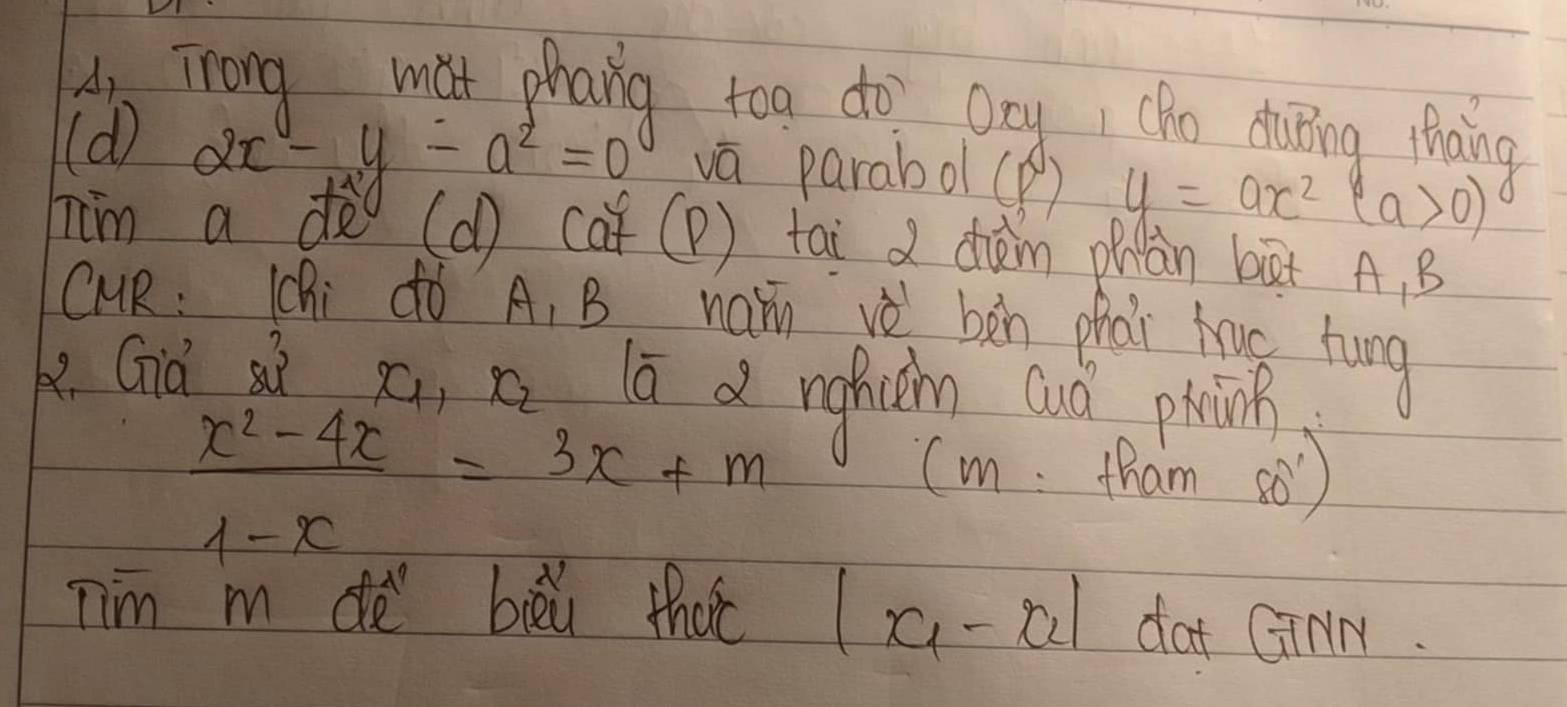 1, Trong mặt phẳng toạ độ Oxy, cho đường thẳng
(d) 2x - y - a² = 0 và parabol (P) y = ax² (a>0)
Tìm a để (d) cắt (P) tại 2 điểm phân biệt A, B
CMR: Khi đó A, B nằm về bên phải trục tung
2. Giả sử x₁, x₂ là 2 nghiệm của ptrình:
x² - 4x = 3x + m (m : tham số)
1 - x
Tìm m để biểu thức |x₁ - x₂| đạt GTNN.